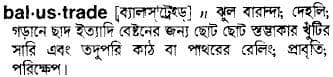 bal·us·trade [ব্যালাস্‌'ট্রেইড্] n ঝুল বারান্দা; দেহলি;
গড়ানে ছাদ ইত্যাদি বেষ্টনের জন্য ছোট ছোট স্তম্ভাকার খুঁটির
সারি এবং তদুপরি কাঠ বা পাথরের রেলিং; প্রাবৃতি;
পরিক্ষেপ।